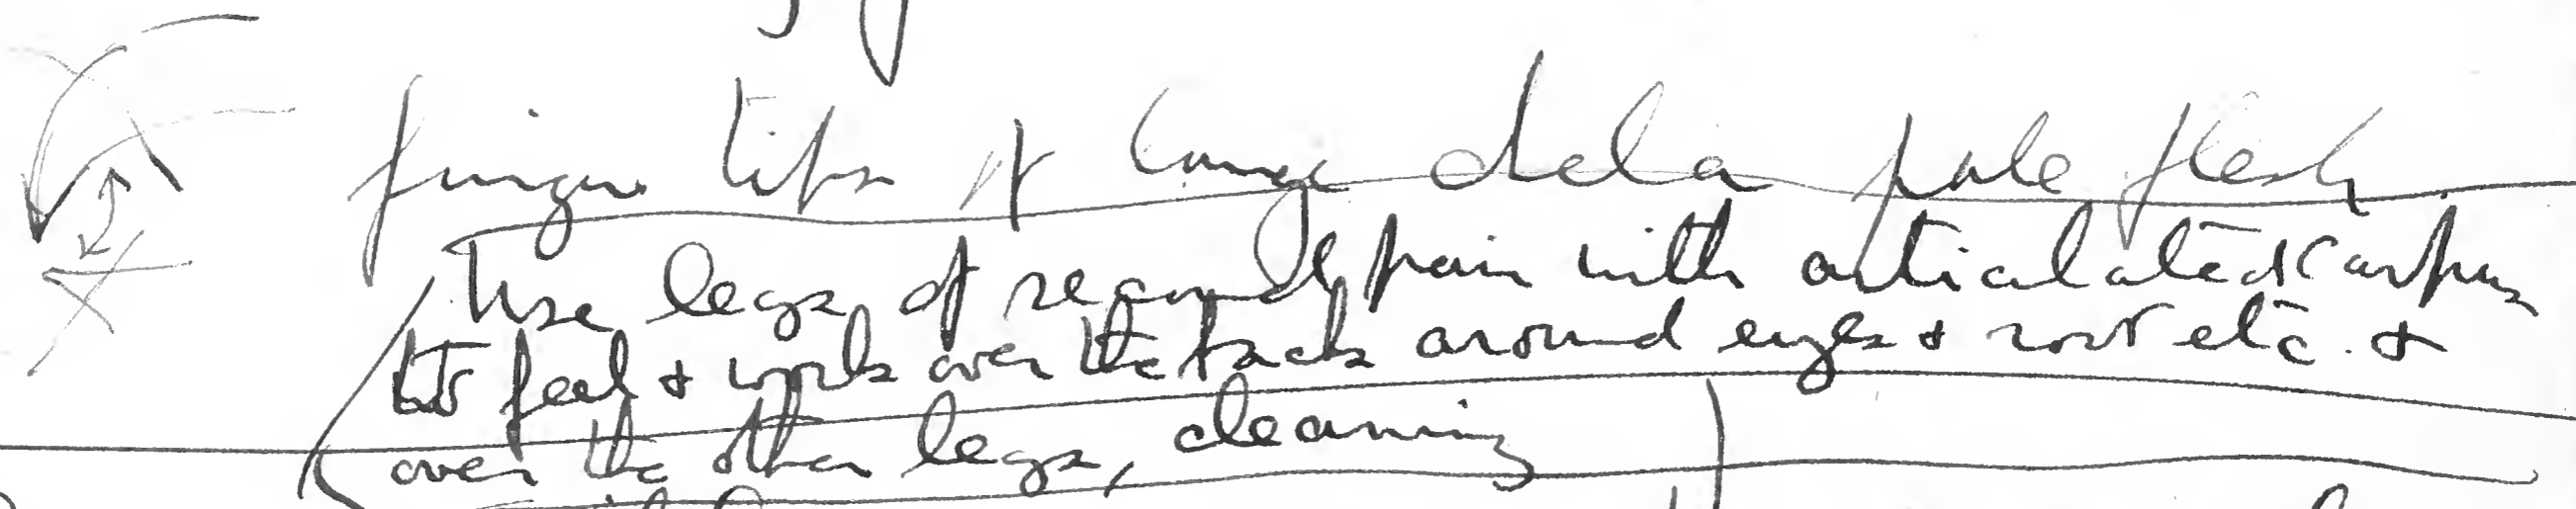 finger tips of large chela pale flesh.
Use legs of second pair with articulated carpus
to feel & work over the back around eyes & rost etc. &
over the other legs, cleaning